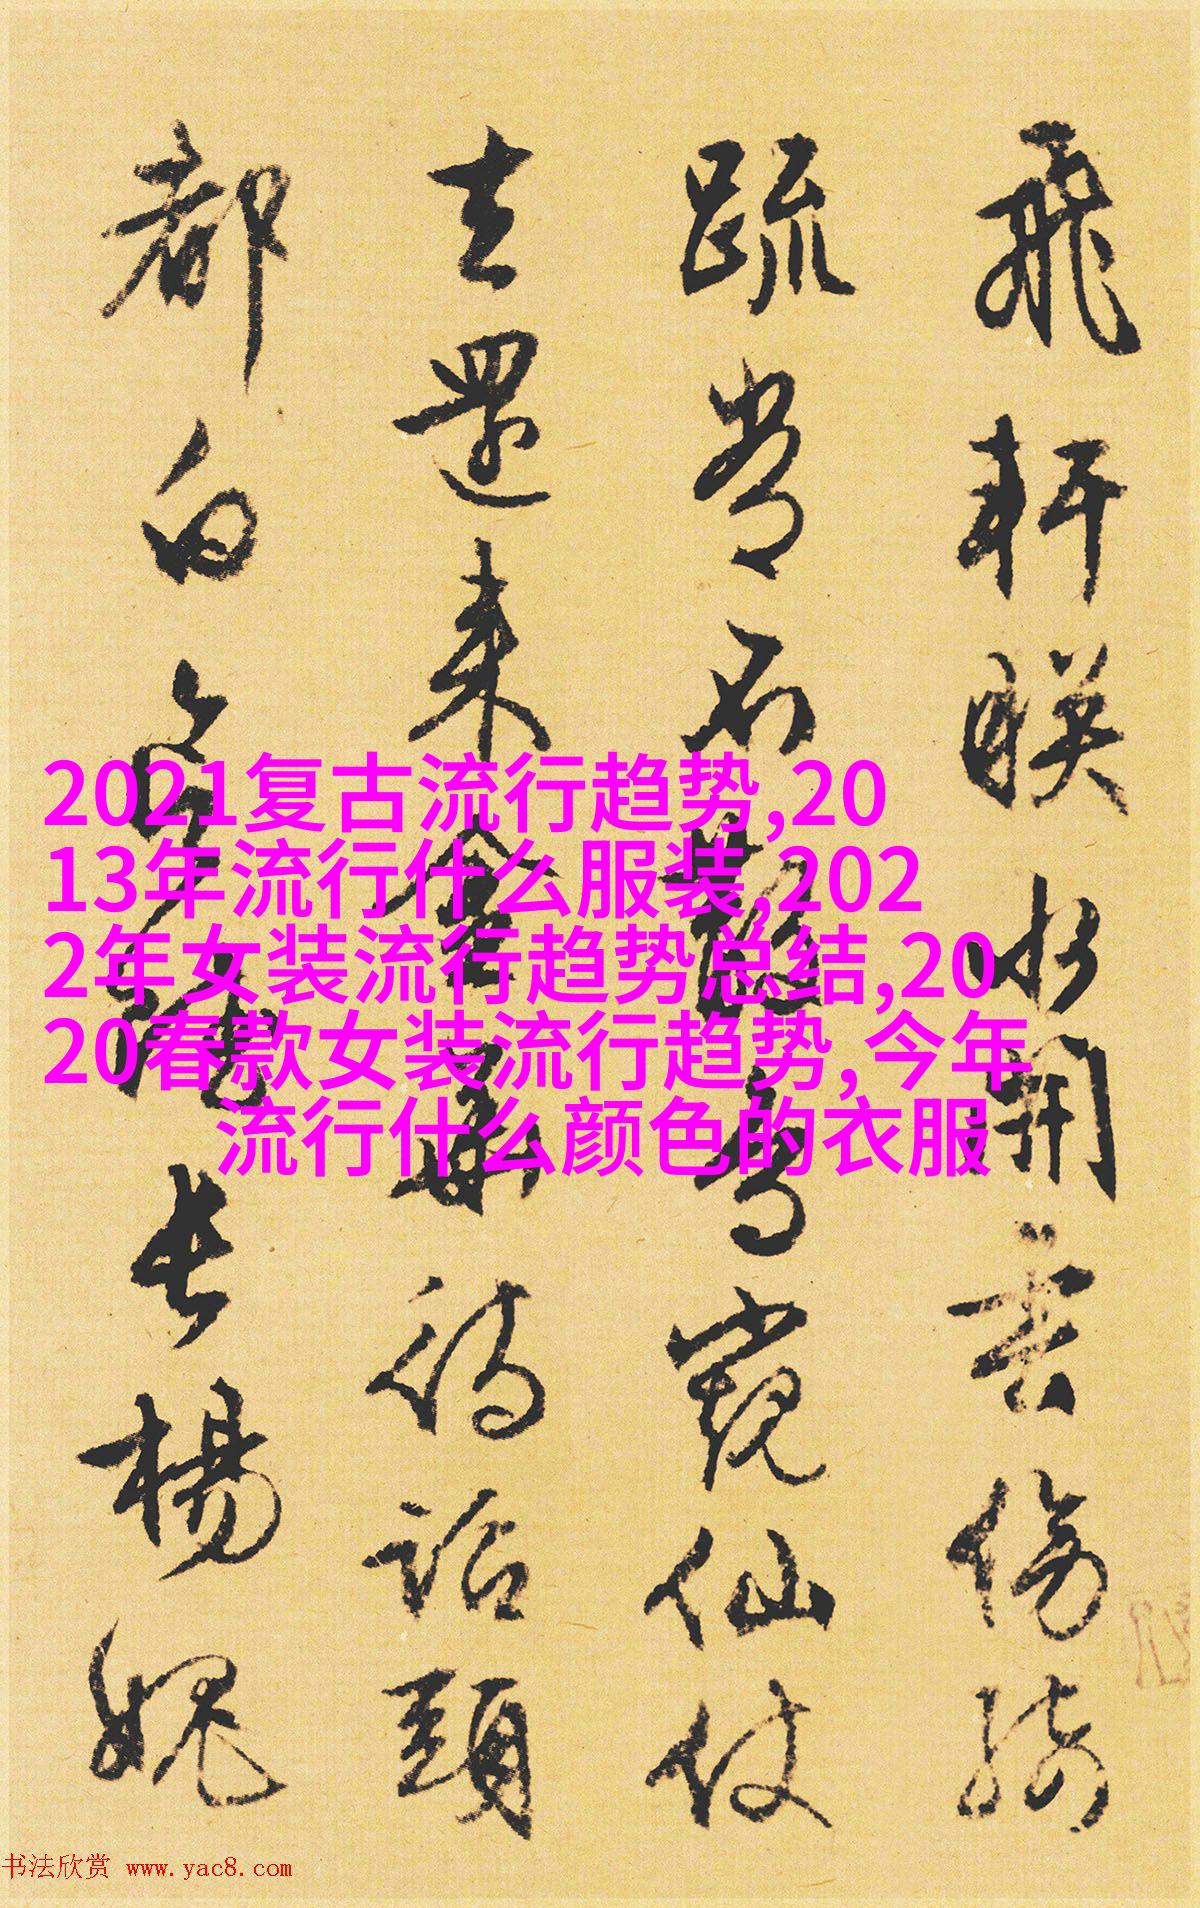 飛軒映水開云傍綺
疏當不
高窺仙仗
去還來禽
華
待詔頭
都白
長楊
愧
2021复古流行趋势,20
13年流行什么服装,202
2年女装流行趋势总结,20
20春款女装流行趋势,今年
流行什么颜色的衣服
书法欣赏 www.yac8.com